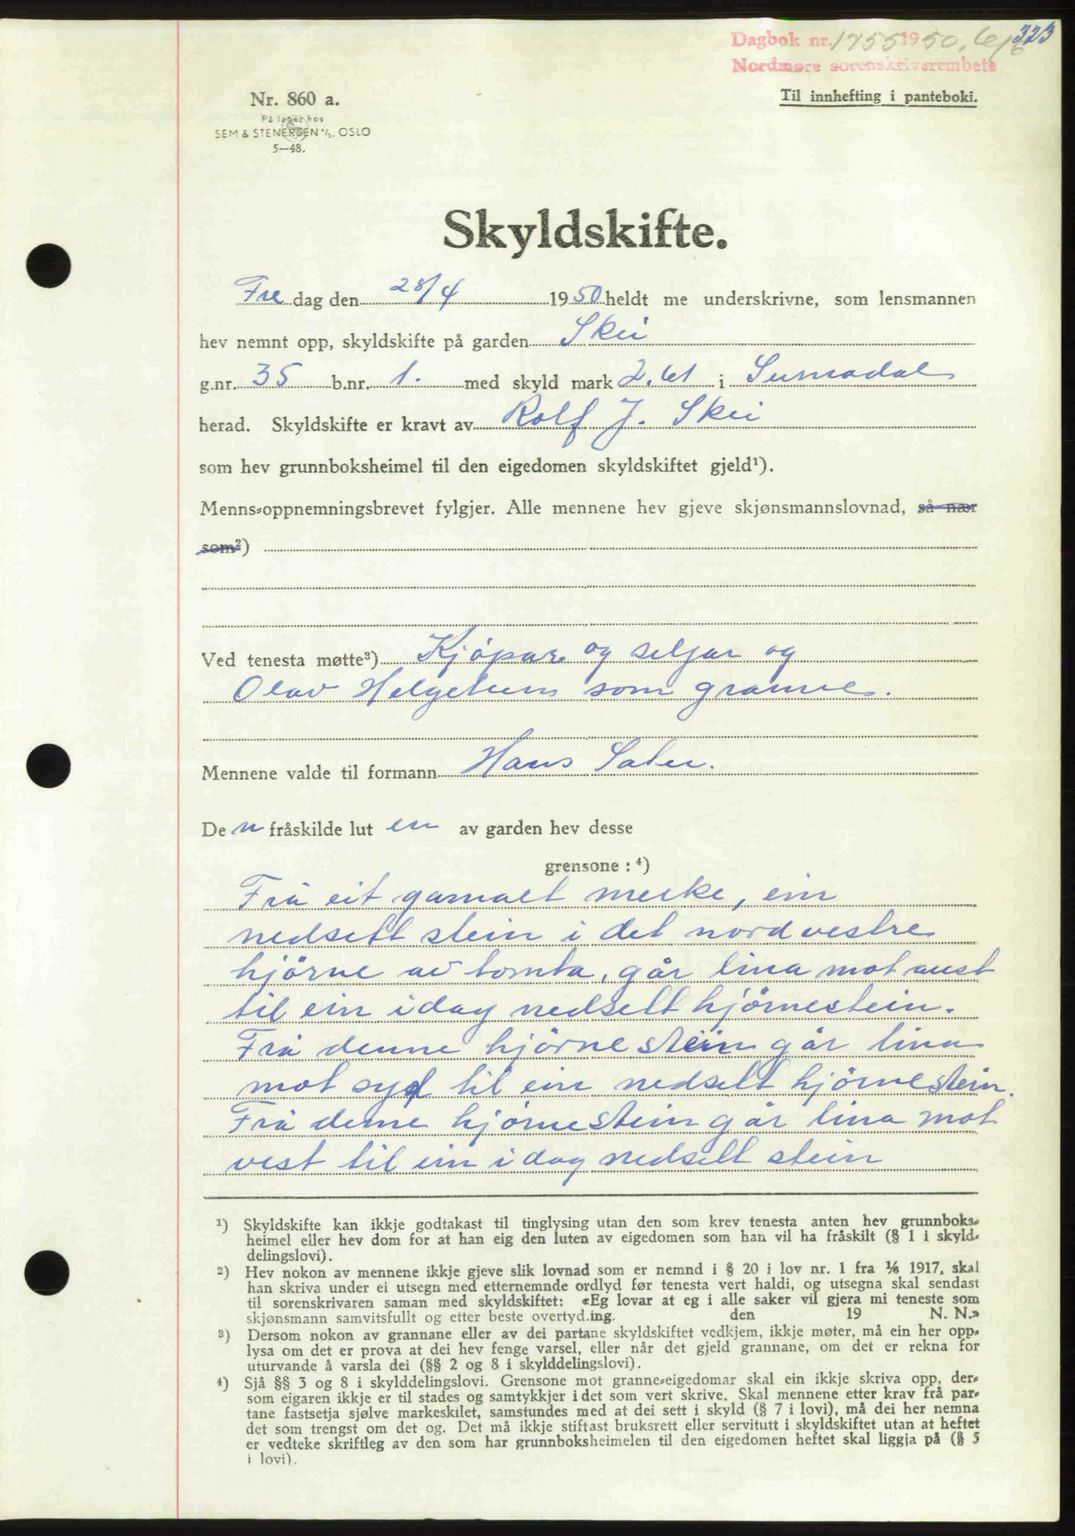 323
Dagbok nr. 1755 1950, 6/6
Nordmøre sorenskriverembete
Til innhefting i panteboki.
Nr. 860 a.
På lager hos
SEM & STENERSEN A/S, OSLO
5—48.
Skyldskifte.
Fre dag den 28/4 1950 heldt me underskrivne, som lensmannen
hev nemnt opp, skyldskifte på garden Skei
g.nr. 35 b.nr. 1. med skyld mark 2,61 i Surnadal
herad. Skyldskifte er kravt av Rolf J. Skei
som hev grunnboksheimel til den eigedomen skyldskiftet gjeld¹).
Menns-oppnemningsbrevet fylgjer. Alle mennene hev gjeve skjønsmannslovnad, så nær
som²)
Ved tenesta møtte³) Kjöpar og seljar og
Olav Helgetun som granne.
Mennene valde til formann Hans Sæter.
De n fråskilde lut en av garden hev desse
grensone : ⁴)
Frå eit gamalt merke, ein
nedsett stein i det nordvestre
hjörne av tomta, går lina mot aust
til ein idag nedsett hjörnestein.
Frå denne hjörnestein går lina
mot syd til ein nedsett hjörnestein.
Frå denne hjörnestein går lina mot
vest til ein idag nedsett stein
¹) Skyldskifte kan ikkje godtakast til tinglysing utan den som krev tenesta anten hev grunnboks-
heimel eller hev dom for at han eig den luten av eigedomen som han vil ha fråskilt (§ 1 i skyld-
delingslovi).
²) Hev nokon av mennene ikkje gjeve slik lovnad som er nemnd i § 20 i lov nr. 1 fra 1/6 1917, skal
han skriva under ei utsegn med etternemnde ordlyd før tenesta vert haldi, og utsegna skal sendast
til sorenskrivaren saman med skyldskiftet: «Eg lovar at eg i alle saker vil gjera mi teneste som
skjønsmann samvitsfullt og etter beste overtyd.ing. den 19 N. N.»
³) Dersom nokon av grannane eller av dei partane skyldskiftet vedkjem, ikkje møter, må ein her opp-
lysa om det er prova at dei hev fenge varsel, eller når det gjeld grannane, om det er rekna for
uturvande å varsla dei (§§ 2 og 8 i skylddelingslovi).
⁴) Sjå §§ 3 og 8 i skylddelingslovi. Grensone mot granne-eigedomar skal ein ikkje skriva opp, der-
som eigaren ikkje er til stades og samtykkjer i det som vert skrive. Skal mennene etter krav frå par-
tane fastsetja sjølve markeskilet, samstundes med at dei sett i skyld (§ 7 i lovi), må dei her nemna
det som trengst om det og. Det må ikkje stiftast bruksrett eller servitutt i skyldskiftet utan at heftet
er vedteke skriftleg av den som har grunnboksheimelen til den eigedomen heftet skal liggja på (§ 5
i lovi).